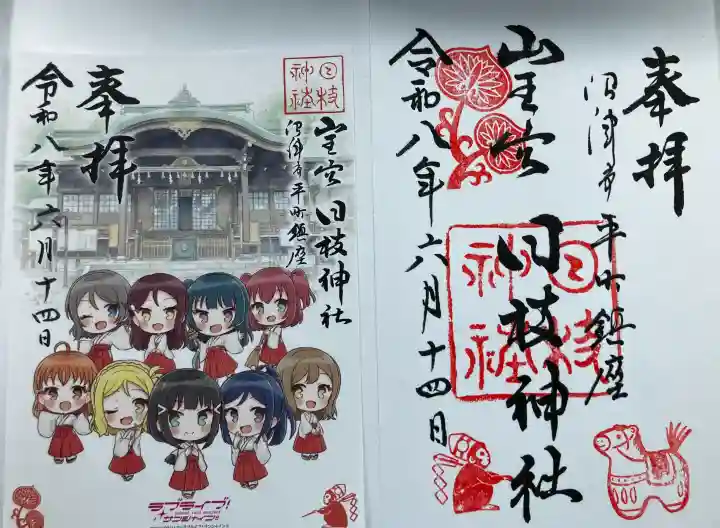 日枝
神社
山王宮 日枝神社
沼津市平町鎮座
奉拝
令和八年六月十四日
ラブライブ!
サンシャイン!!
奉拝
沼津市 平町鎮座
山王宮 日枝神社
日枝
神社
令和八年六月十四日